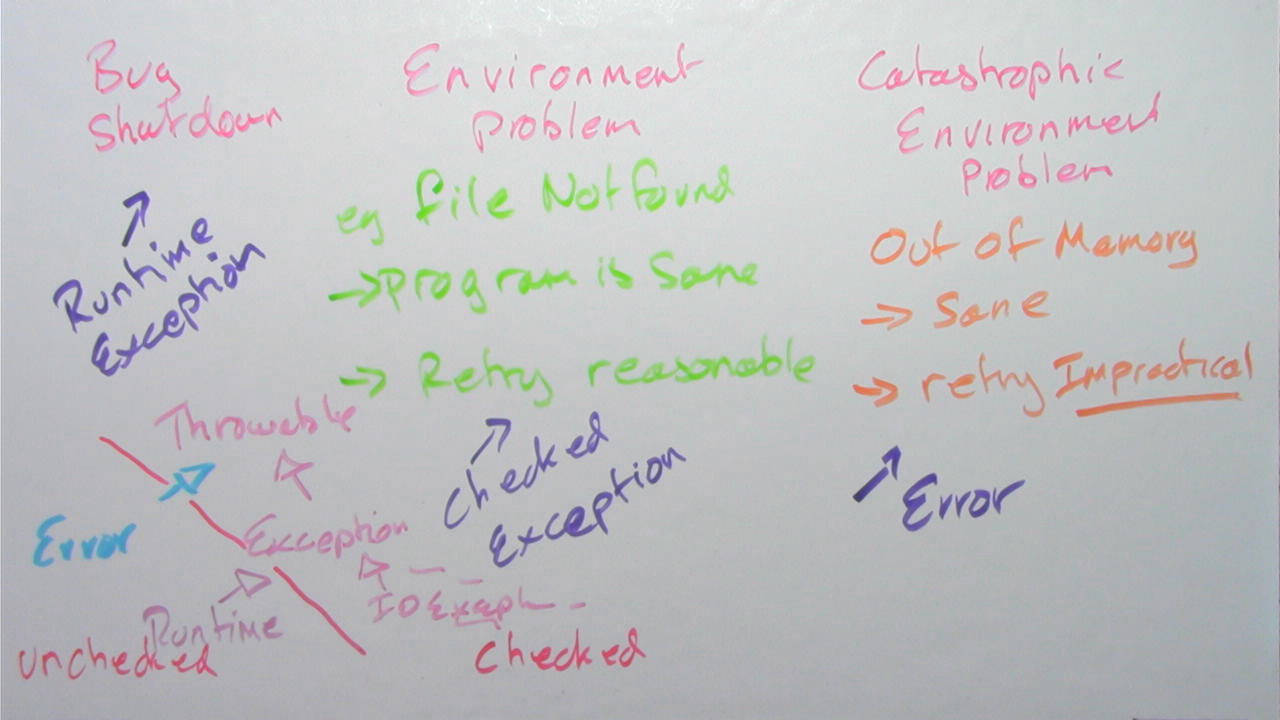 Bug
Shutdown
Runtime
Exception
Environment
Problem
eg File Not found
→ program is Sane
→ Retry reasonable
Checked
Exception
Catastrophic
Environment
Problem
Out of Memory
→ Sane
→ retry Impractical
Error
Throwable
Error
Exception
Runtime
IO Exceptn
unchecked
Checked